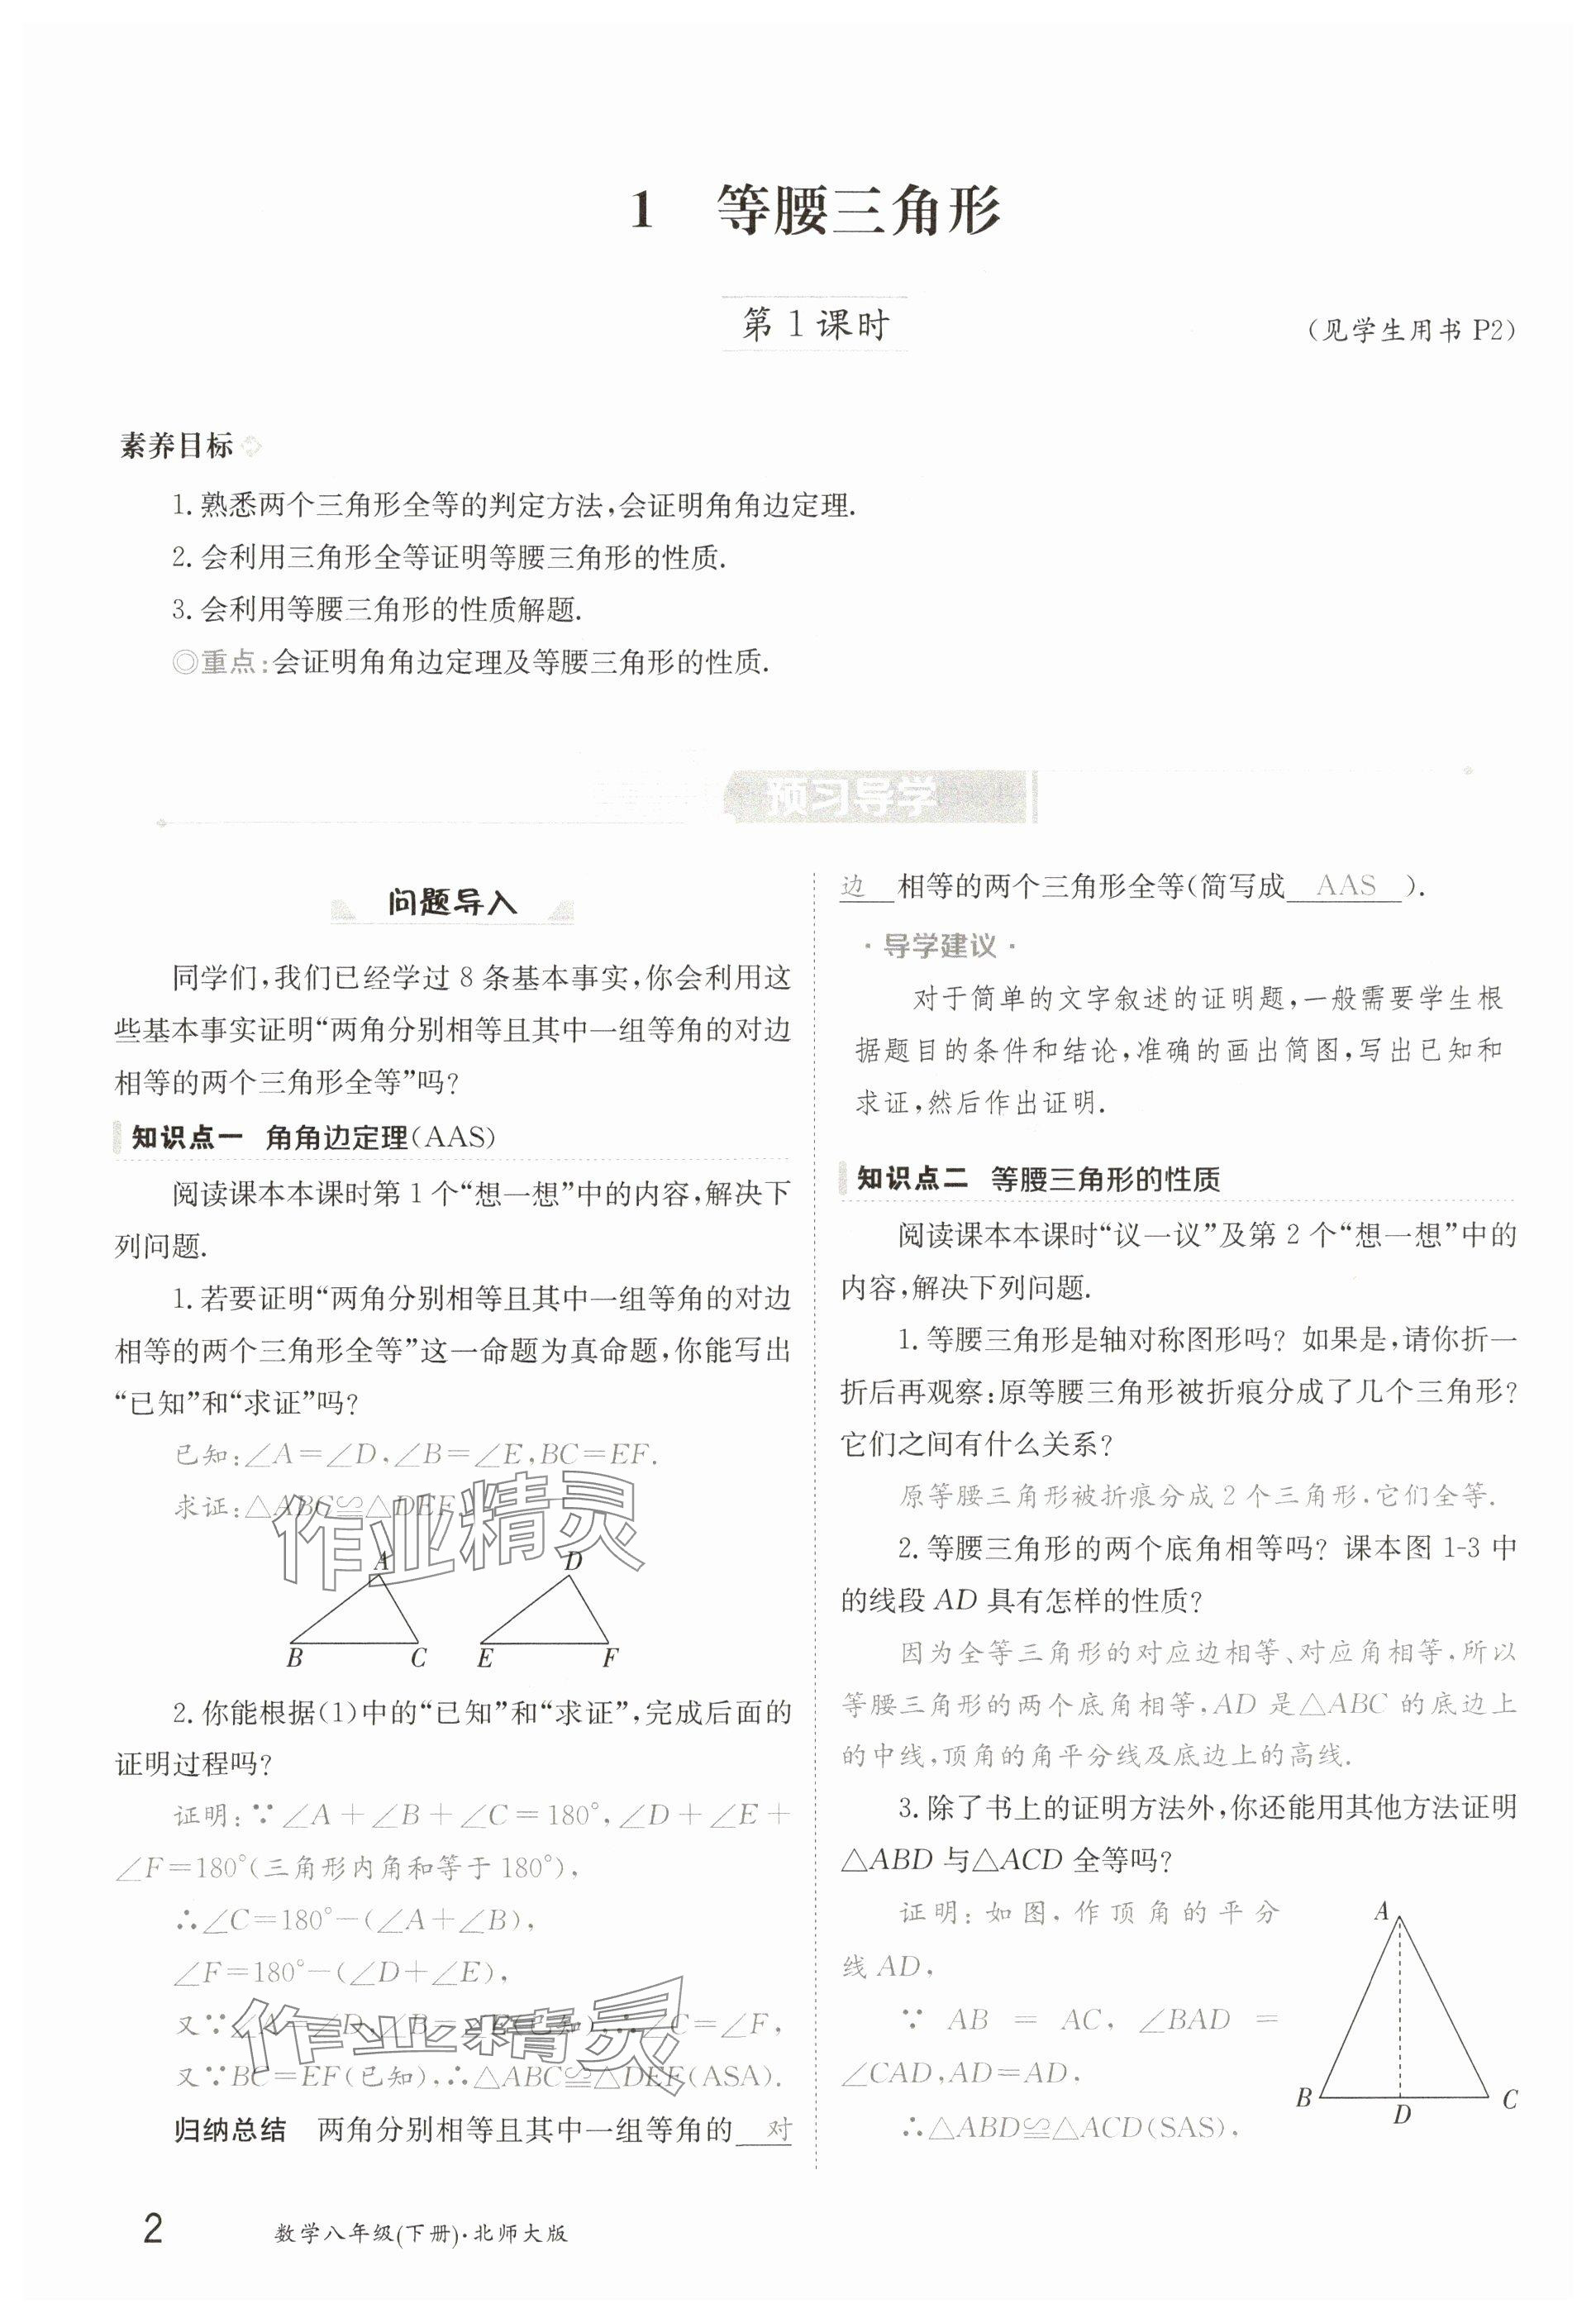 1 等腰三角形
第1课时
(见学生用书 P2)
素养目标
1. 熟悉两个三角形全等的判定方法,会证明角角边定理.
2. 会利用三角形全等证明等腰三角形的性质.
3. 会利用等腰三角形的性质解题.
◎重点:会证明角角边定理及等腰三角形的性质.
预习导学
问题导入
同学们,我们已经学过 8 条基本事实,你会利用这
些基本事实证明“两角分别相等且其中一组等角的对边
相等的两个三角形全等”吗?
知识点一 角角边定理(AAS)
阅读课本本课时第 1 个“想一想”中的内容,解决下
列问题.
1. 若要证明“两角分别相等且其中一组等角的对边
相等的两个三角形全等”这一命题为真命题,你能写出
“已知”和“求证”吗?
已知:∠A=∠D,∠B=∠E,BC=EF.
求证:△ABC≌△DEF.
作业精灵
A D
B C E F
2. 你能根据(1)中的“已知”和“求证”,完成后面的
证明过程吗?
证明:∵∠A+∠B+∠C=180°,∠D+∠E+
∠F=180°(三角形内角和等于 180°),
∴∠C=180°-(∠A+∠B),
∠F=180°-(∠D+∠E),
又∵∠A=∠D,∠B=∠E(已知),∴∠C=∠F,
作业精灵
又∵BC=EF(已知),∴△ABC≌△DEF(ASA).
归纳总结 两角分别相等且其中一组等角的 对
边 相等的两个三角形全等(简写成 AAS ).
·导学建议·
对于简单的文字叙述的证明题,一般需要学生根
据题目的条件和结论,准确的画出简图,写出已知和
求证,然后作出证明.
知识点二 等腰三角形的性质
阅读课本本课时“议一议”及第 2 个“想一想”中的
内容,解决下列问题.
1. 等腰三角形是轴对称图形吗? 如果是,请你折一
折后再观察:原等腰三角形被折痕分成了几个三角形?
它们之间有什么关系?
原等腰三角形被折痕分成 2 个三角形,它们全等.
2. 等腰三角形的两个底角相等吗? 课本图 1-3 中
的线段 AD 具有怎样的性质?
因为全等三角形的对应边相等、对应角相等,所以
等腰三角形的两个底角相等,AD 是△ABC 的底边上
的中线,顶角的角平分线及底边上的高线.
3. 除了书上的证明方法外,你还能用其他方法证明
△ABD 与△ACD 全等吗?
证明:如图,作顶角的平分
线 AD,
∵ AB = AC, ∠BAD =
∠CAD,AD=AD,
∴△ABD≌△ACD(SAS),
A
B D C
2 数学八年级(下册)·北师大版